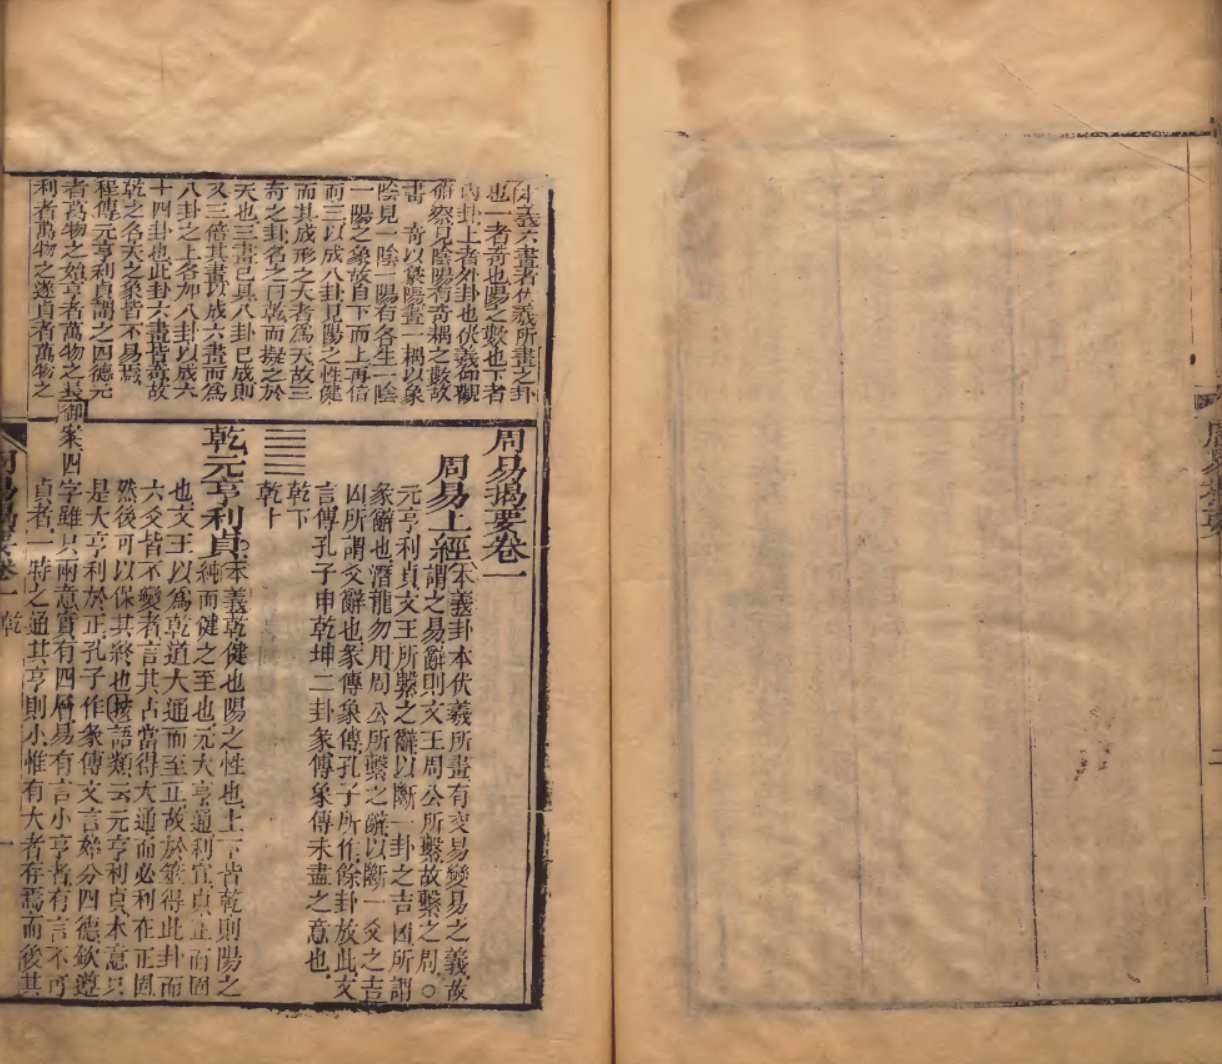 本義六畫者伏羲所畫之卦
也一者奇也陽之數也下者
內卦上者外卦也伏羲仰觀
俯察見陰陽有奇耦之數故
畫 奇以象陽畫一耦以象
陰見一陰一陽有各生一陰
一陽之象故自下而上再倍
而三以成八卦見陽之性健
而其成形之大者爲天故三
奇之卦名之曰乾而擬之於
天也三畫已具八卦已成則
又三倍其畫以成六畫而爲
八卦之上各加八卦以成六
十四卦也此卦六畫皆奇故
乾之名天之象皆不易焉
程傳元亨利貞謂之四德元
者萬物之始亨者萬物之長
利者萬物之遂貞者萬物之
周易揭要卷一
周易上經 本義卦本伏羲所畫有交易變易之義故
謂之易辭則文王周公所繫故繫之周○
元亨利貞文王所繫之辭以斷一卦之吉凶所謂
彖辭也潛龍勿用周公所繫之辭以斷一爻之吉
凶所謂爻辭也彖傳象傳孔子所作餘卦放此文
言傳孔子申乾坤二卦彖傳象傳未盡之意也
乾下
乾上
乾元亨利貞 本義乾健也陽之性也上下皆乾則陽之
純而健之至也元大亨通利宜貞正而固
也文王以爲乾道大通而至正故於筮得此卦而
六爻皆不變者言其占當得大通而必利在正固
然後可以保其終也按語類云元亨利貞本意只
是大亨利於正孔子作彖傳文言始分四德欽遵
御案四字雖只兩意實有四層易有言小亨者有言不可
貞者一時之通其亨則小惟有大者存焉而後其
周易揭要卷一 乾 一